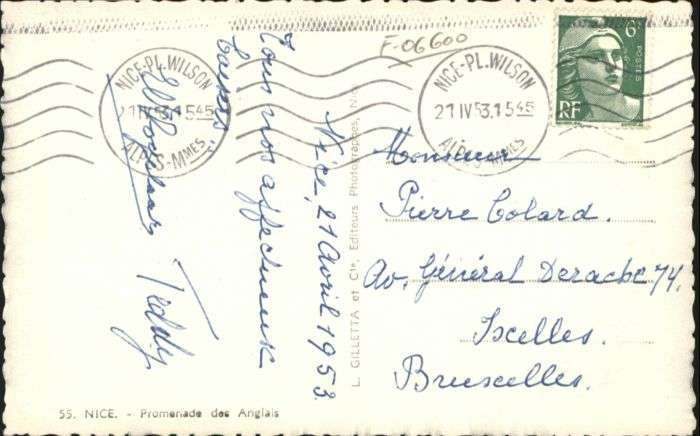 F-06600
6F
POSTES
RF
NICE-PL.WILSON
21 IV 53.1545
ALPES-MMES
NICE-PL.WILSON
21 IV 53.1545
ALPES-MMES
Nice, 21 Avril 1953
Tous nos affectueux
baisers
Teddy
L. GILLETTA et Cie, Editeurs Photographes, Nice
Monsieur
Pierre Colard.
Av. Général Derache 74.
Ixelles.
Bruxelles.
55. NICE. - Promenade des Anglais